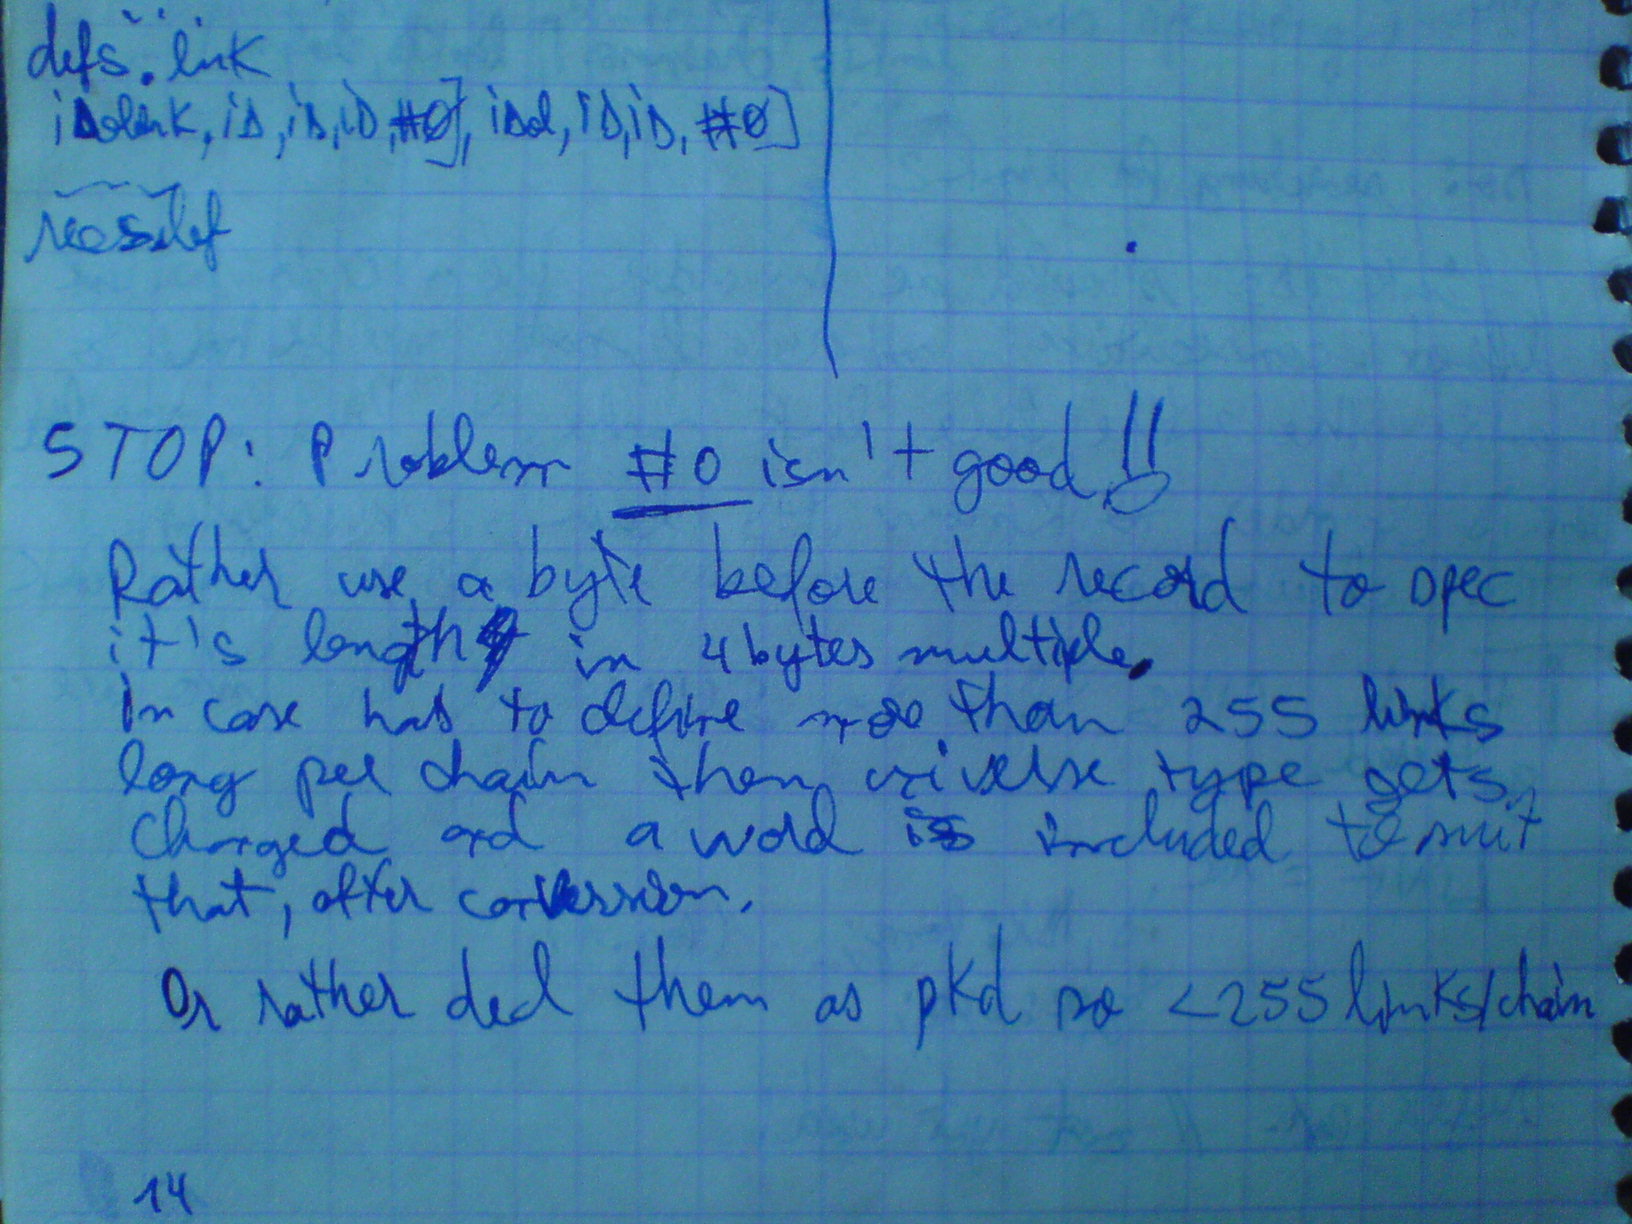 defs. link
iDolink, iD, iD, iD, #0], iDol, iD, iD, #0]
STOP: Problem #0 isn't good!!
Rather use a byte before the record to spec
it's length in 4 bytes multiple.
In case has to define more than 255 links
long per chain then type gets
changed and a word is included to suit
that, after conversion.
Or rather decl them as pkd so <255 links/chain
14